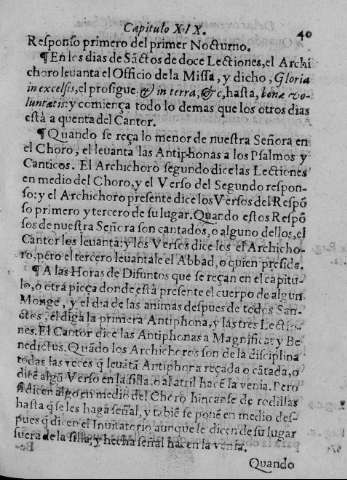 Capitulo XIX. 40
Responso primero del primer Nocturno.
¶ En los dias de Sãctos de doce Lectiones, el Archi
choro leuanta el Officio de la Missa, y dicho, Gloria
in excelsis, el prosigue & in terra, &c, hasta, bonæ vo-
luntatis: y comiença todo lo demas que los otros dias
està a quenta del Cantor.
¶ Quando se reça lo menor de nuestra Señora en
el Choro, el leuanta las Antiphonas a los Psalmos y
Canticos. El Archichorò segundo dice las Lectiones
en medio del Choro, y el Verso del Segundo respon-
so: y el Archichoro presente dice los Versos del Respõ
so primero y tercero de su lugar. Quando estos Respõ
sos de nuestra Señora son cantados, o alguno dellos, el
Cantor los leuanta: y los Versos dice los el Archicho-
ro, pero el tercero leuantale el Abbad, o quien preside.
¶ A las Horas de Difuntos que se reçan en el capitu-
lo, o otra pieça donde està presente el cuerpo de algun
Monge, y el dia de las animas despues de todos San-
ctos, el diga la primera Antiphona, y las tres Lectio-
nes. El Cantor dice las Antiphonas a Magnificat y Be
nedictus. Quãdo los Archichoros son de la disciplina
todas las veces q̃ leuãtã Antiphona reçada o cãtada, o
dicẽ algũ Verso en la silla, o al atril hacẽ la venia. Pero
si dicen algo en medio del Choro hincanse de rodillas
hasta q̃ se les haga señal, y tãbiẽ se ponẽ en medio des-
pues q̃ dicẽ el Inuitatorio aunque le dicen de su lugar
fuera de la silla, y hecha señal hacen la venia.
Quando